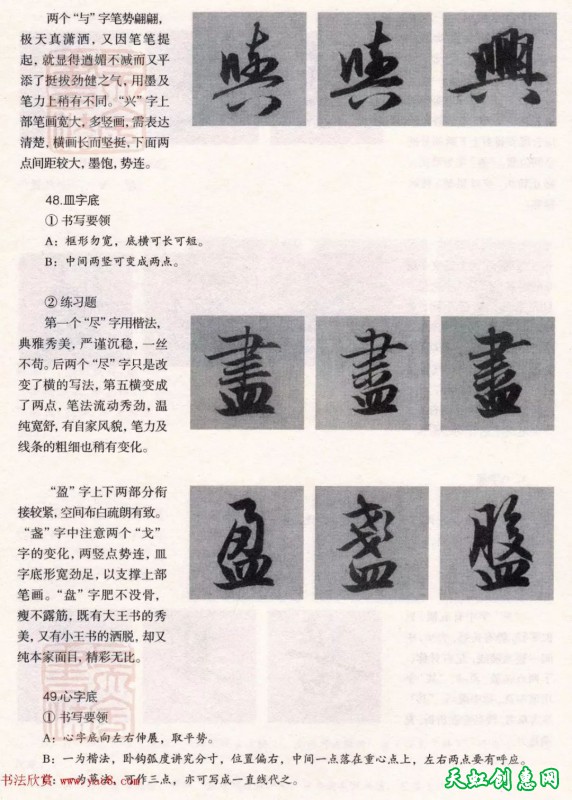 两个“与”字笔势翩翩，
极天真潇洒，又因笔笔提
起，就显得遒媚不减而又平
添了挺拔劲健之气，用墨及
笔力上稍有不同。“兴”字上
部笔画宽大，多竖画，需表达
清楚，横画长而竖挺，下面两
点间距较大，墨饱，势连。
與 與 興
48.皿字底
① 书写要领
A：框形勿宽，底横可长可短。
B：中间两竖可变成两点。
② 练习题
第一个“尽”字用楷法，
典雅秀美，严谨沉稳，一丝
不苟。后两个“尽”字只是改
变了横的写法，第五横变成
了两点，笔法流动秀劲，温
纯宽舒，有自家风貌，笔力及
线条的粗细也稍有变化。
盡 盡 盡
“盈”字上下两部分衔
接较紧，空间布白疏朗有致。
“盏”字中注意两个“戈”
字的变化，两竖点势连，皿
字底形宽劲足，以支撑上部
笔画。“盘”字肥不没骨，
瘦不露筋，既有大王书的秀
美，又有小王书的洒脱，却又
纯本家面目，精彩无比。
盈 盞 盤
49.心字底
① 书写要领
A：心字底向左右伸展，取平势。
B：一为楷法，卧钩弧度讲究分寸，位置偏右，中间一点落在重心点上，左右两点要有呼应。
一为草法，可作三点，亦可写成一直线代之。
书法欣赏
天虹创意网